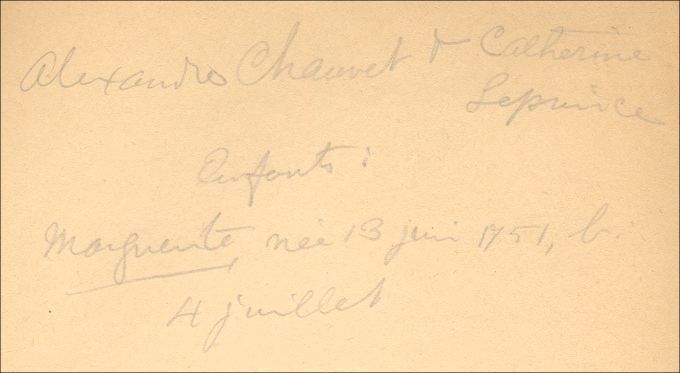 Alexandre Chauvet & Catherine
Leprince
Enfants :
Marguerite, née 13 juin 1751, b.
4 juillet